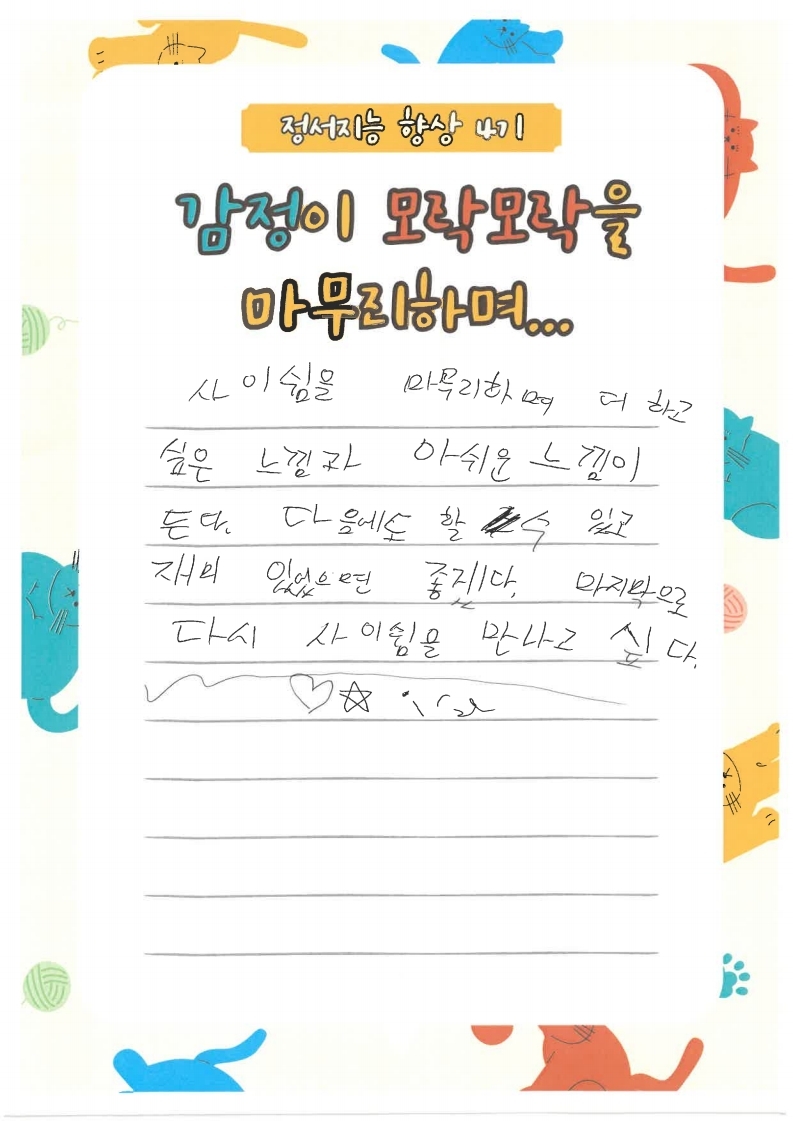 정서지능 향상 4기
감정이 모락모락을
마무리하며...
사이쉼을 마무리하며 더 하고
싶은 느낌과 아쉬운 느낌이
든다. 다음에도 할 수 있고
재미 있었으면 좋겠다. 마지막으로
다시 사이쉼을 만나고 싶다.